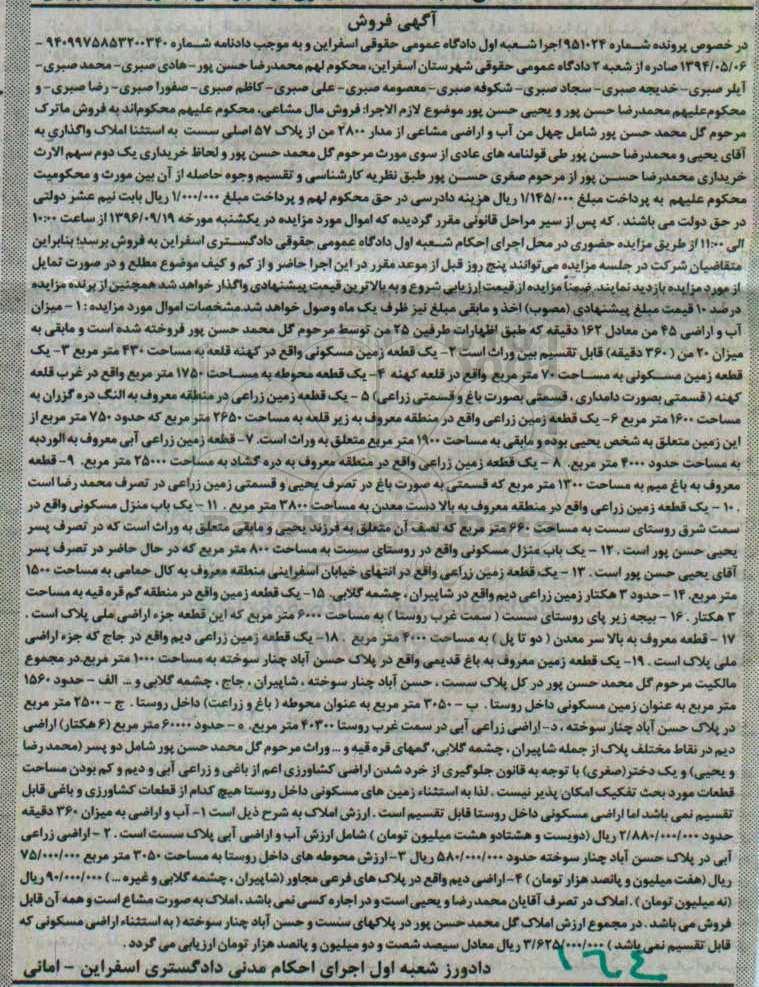 آگهی فروش
در خصوص پرونده شماره ۹۵۱۰۲۴ اجرا شعبه اول دادگاه عمومی حقوقی اسفراین و به موجب دادنامه شماره ۹۴۰۹۹۷۵۸۵۳۲۰۰۳۴۰ -
۱۳۹۴/۰۵/۰۶ صادره از شعبه ۲ دادگاه عمومی حقوقی شهرستان اسفراین، محکوم لهم محمدرضا حسن پور - هادی صبری - محمد صبری -
آیلر صبری - خدیجه صبری - سجاد صبری - شکوفه صبری - معصومه صبری - علی صبری - کاظم صبری - صفورا صبری - رضا صبری - و
محکوم علیهم محمدرضا حسن پور و یحیی حسن پور موضوع لازم الاجرا: فروش مال مشاعی، محکوم علیهم محکوم‌اند به فروش ماترک
مرحوم گل محمد حسن پور شامل چهل من آب و اراضی مشاعی از مدار ۲۸۰۰ من از پلاک ۵۷ اصلی سست به استثنا املاک واگذاری به
آقای یحیی و محمدرضا حسن پور طی قولنامه های عادی از سوی مورث مرحوم گل محمد حسن پور و لحاظ خریداری یک دوم سهم الارث
خریداری محمدرضا حسن پور از مرحوم صغری حسن پور طبق نظریه کارشناسی و تقسیم وجوه حاصله از آن بین مورث و محکومیت
محکوم علیهم به پرداخت مبلغ ۱/۱۴۵/۰۰۰ ریال هزینه دادرسی در حق محکوم لهم و پرداخت مبلغ ۱/۰۰۰/۰۰۰ ریال بابت نیم عشر دولتی
در حق دولت می باشند. که پس از سیر مراحل قانونی مقرر گردیده که اموال مورد مزایده در یکشنبه مورخه ۱۳۹۶/۰۹/۱۹ از ساعت ۱۰:۰۰
الی ۱۱:۰۰ از طریق مزایده حضوری در محل اجرای احکام شعبه اول دادگاه عمومی حقوقی دادگستری اسفراین به فروش برسد؛ بنابراین
متقاضیان شرکت در جلسه مزایده می‌توانند پنج روز قبل از موعد مقرر در این اجرا حاضر و از کم و کیف موضوع مطلع و در صورت تمایل
از مورد مزایده بازدید نمایند. ضمناً مزایده از قیمت ارزیابی شروع و به بالاترین قیمت پیشنهادی واگذار خواهد شد همچنین از برنده مزایده
درصد ۱۰ قیمت مبلغ پیشنهادی (مصوب) اخذ و مابقی مبلغ نیز ظرف یک ماه وصول خواهد شد. مشخصات اموال مورد مزایده: ۱ - میزان
آب و اراضی ۴۵ من معادل ۱۶۲ دقیقه که طبق اظهارات طرفین ۲۵ من توسط مرحوم گل محمد حسن پور فروخته شده است و مابقی به
میزان ۲۰ من (۳۶۰ دقیقه) قابل تقسیم بین وراث است ۲- یک قطعه زمین مسکونی واقع در کهنه قلعه به مساحت ۴۳۰ متر مربع ۳- یک
قطعه زمین مسکونی به مساحت ۷۰ متر مربع واقع در قلعه کهنه ۴- یک قطعه محوطه به مساحت ۱۷۵۰ متر مربع واقع در غرب قلعه
کهنه (قسمتی بصورت دامداری، قسمتی بصورت باغ و قسمتی زراعی) ۵ - یک قطعه زمین زراعی در منطقه معروف به النگ دره گزران به
مساحت ۱۶۰۰ متر مربع ۶- یک قطعه زمین زراعی واقع در منطقه معروف به زیر قلعه به مساحت ۲۶۵۰ متر مربع که حدود ۷۵۰ متر مربع از
این زمین متعلق به شخص یحیی بوده و مابقی به مساحت ۱۹۰۰ متر مربع متعلق به وراث است. ۷- قطعه زمین زراعی آبی معروف به الوردیه
به مساحت حدود ۴۰۰۰ متر مربع. ۸ - یک قطعه زمین زراعی واقع در منطقه معروف به دره گشاد به مساحت ۲۵۰۰۰ متر مربع. ۹- قطعه
معروف به باغ میم به مساحت ۱۳۰۰ متر مربع که قسمتی به صورت باغ در تصرف یحیی و قسمتی زمین زراعی در تصرف محمد رضا است
. ۱۰ - یک قطعه زمین زراعی واقع در منطقه معروف به بالا دست معدن به مساحت ۳۸۰۰ متر مربع. ۱۱ - یک باب منزل مسکونی واقع در
سمت شرق روستای سست به مساحت ۶۶۰ متر مربع که نصف آن متعلق به فرزند یحیی و مابقی متعلق به وراث است که در تصرف پسر
یحیی حسن پور است. ۱۲ - یک باب منزل مسکونی واقع در روستای سست به مساحت ۸۰۰ متر مربع که در حال حاضر در تصرف پسر
آقای یحیی حسن پور است. ۱۳ - یک قطعه زمین زراعی واقع در انتهای خیابان اسفراینی منطقه معروف به کال حمامی به مساحت ۱۵۰۰
متر مربع. ۱۴ - حدود ۳ هکتار زمین زراعی دیم واقع در شاپیران، چشمه گلابی. ۱۵- یک قطعه زمین واقع در منطقه گم قره قیه به مساحت
۳ هکتار. ۱۶ - بیجه زیر پای روستای سست (سمت غرب روستا) به مساحت ۶۰۰۰ متر مربع که این قطعه جزء اراضی ملی پلاک است.
۱۷ - قطعه معروف به بالا سر معدن (دو تا پل) به مساحت ۴۰۰۰ متر مربع. ۱۸- یک قطعه زمین زراعی دیم واقع در جاج که جزء اراضی
ملی پلاک است. ۱۹- یک قطعه زمین معروف به باغ قدیمی واقع در پلاک حسن آباد چنار سوخته به مساحت ۱۰۰۰ متر مربع. در مجموع
مالکیت مرحوم گل محمد حسن پور در کل پلاک سست، حسن آباد چنار سوخته، شاپیران، جاج، چشمه گلابی و ... الف - حدود ۱۵۶۰
متر مربع به عنوان زمین مسکونی داخل روستا. ب - ۳۰۵۰ متر مربع به عنوان محوطه (باغ و زراعت) داخل روستا. ج - ۲۵۰۰ متر مربع
در پلاک حسن آباد چنار سوخته، د- اراضی زراعی آبی در سمت غرب روستا ۴۰۳۰۰ متر مربع. ه - حدود ۶۰۰۰۰ متر مربع (۶ هکتار) اراضی
دیم در نقاط مختلف پلاک از جمله شاپیران، چشمه گلابی، گمهای قره قیه و ... وراث مرحوم گل محمد حسن پور شامل دو پسر (محمد رضا
و یحیی) و یک دختر (صغری) با توجه به قانون جلوگیری از خرد شدن اراضی کشاورزی اعم از باغی و زراعی آبی و دیم و کم بودن مساحت
قطعات مورد بحث تفکیک امکان پذیر نیست. لذا به استثناء زمین های مسکونی داخل روستا هیچ کدام از قطعات کشاورزی و باغی قابل
تقسیم نمی باشد اما اراضی مسکونی داخل روستا قابل تقسیم است. ارزش املاک به شرح ذیل است ۱- آب و اراضی به میزان ۳۶۰ دقیقه
حدود ۲/۸۸۰/۰۰۰/۰۰۰ ریال (دویست و هشتادو هشت میلیون تومان) شامل ارزش آب و اراضی آبی پلاک سست است. ۲ - اراضی زراعی
آبی در پلاک حسن آباد چنار سوخته حدود ۵۸۰/۰۰۰/۰۰۰ ریال ۳- ارزش محوطه های داخل روستا به مساحت ۳۰۵۰ متر مربع ۷۵/۰۰۰/۰۰۰
ریال (هفت میلیون و پانصد هزار تومان) ۴- اراضی دیم واقع در پلاک های فرعی مجاور (شاپیران، چشمه گلابی و غیره ...) ۹۰/۰۰۰/۰۰۰ ریال
(نه میلیون تومان). املاک در تصرف آقایان محمد رضا و یحیی است و در اجاره کسی نمی باشد، املاک به صورت مشاع است و همه آن قابل
فروش می باشد. در مجموع ارزش املاک گل محمد حسن پور در پلاکهای سست و حسن آباد چنار سوخته (به استثناء اراضی مسکونی که
قابل تقسیم نمی باشد) ۳/۶۲۵/۰۰۰/۰۰۰ ریال معادل سیصد شصت و دو میلیون و پانصد هزار تومان ارزیابی می گردد.
دادورز شعبه اول اجرای احکام مدنی دادگستری اسفراین - امانی